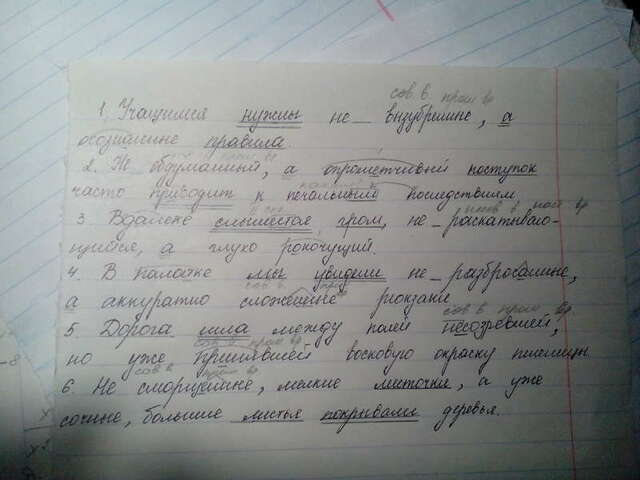 сов. в. прош вр
1. Учащимся нужны не вызубренные, а
осознанные правила.
2. Не обдуманный, а опрометчивый поступок
часто приводит к печальным последствиям
3. Вдалеке слышится гром, не раскатываю-
щийся, а глухо рокочущий.
4. В палатке мы увидели не разбросанные,
а аккуратно сложенные рюкзаки
сов в прош вр
5. Дорога шла между полей несозревшей,
но уже принявшей восковую окраску пшеницы
6. Не сморщенные, мелкие листочки, а уже
сочные, большие листья покрывали деревья.